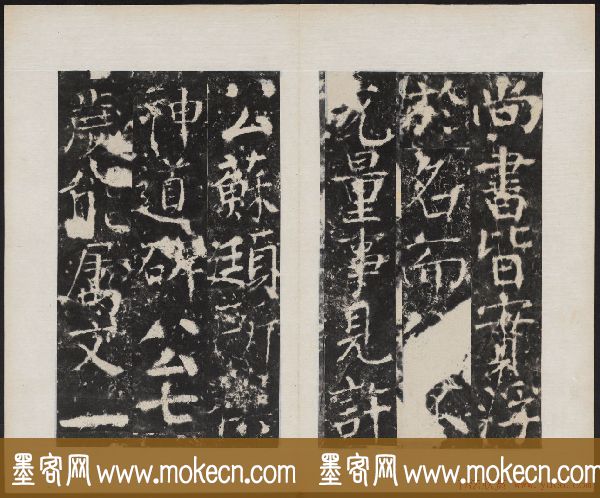 尚書皆實浮
於名而不
充量事見許
公蘇頲所
神道碑公七
歲能屬文一
墨客网 www.mokecn.com 墨客网 www.mokecn.com